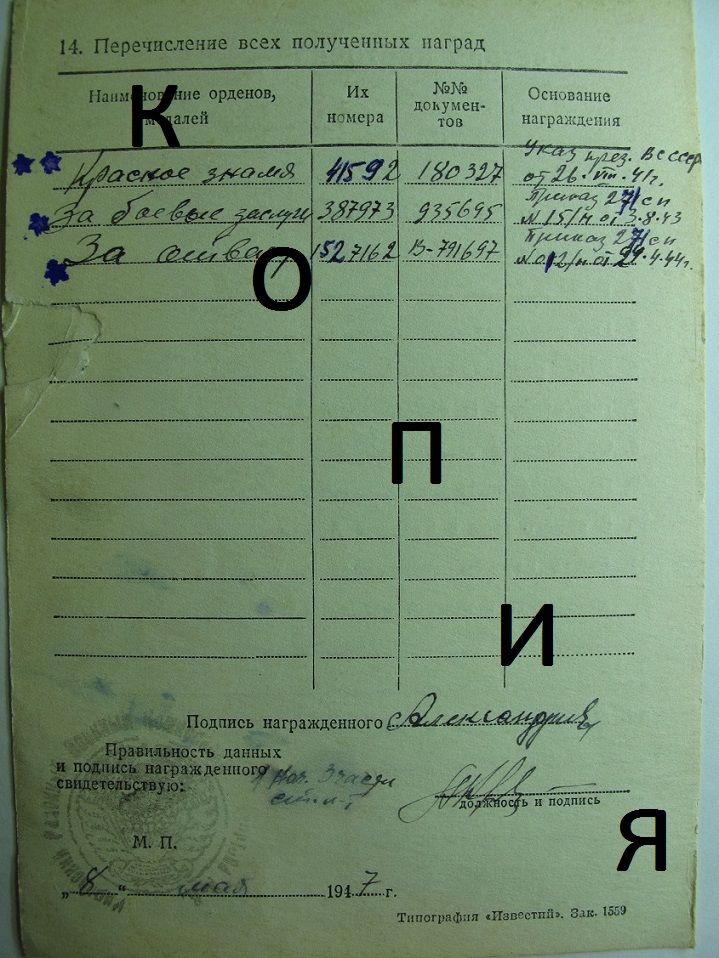 14. Перечисление всех полученных наград
Наименование орденов, медалей
Их номера
№№ документов
Основание награждения
Красное знамя 41592 180327 Указ през. ВС СССР от 26.VIII-41г.
За боевые заслуги 387973 935695 Приказ 271 сп №15/н от 3.8.43
За отвагу 1527162 В-791697 Приказ 271 сп №012/н от 29.4.44г.
К
О
П
И
Я
Подпись награжденного
Правильность данных
и подпись награжденного
свидетельствую:
должность и подпись
М. П.
„8“ мая 1947 г.
Типография «Известий». Зак. 1559